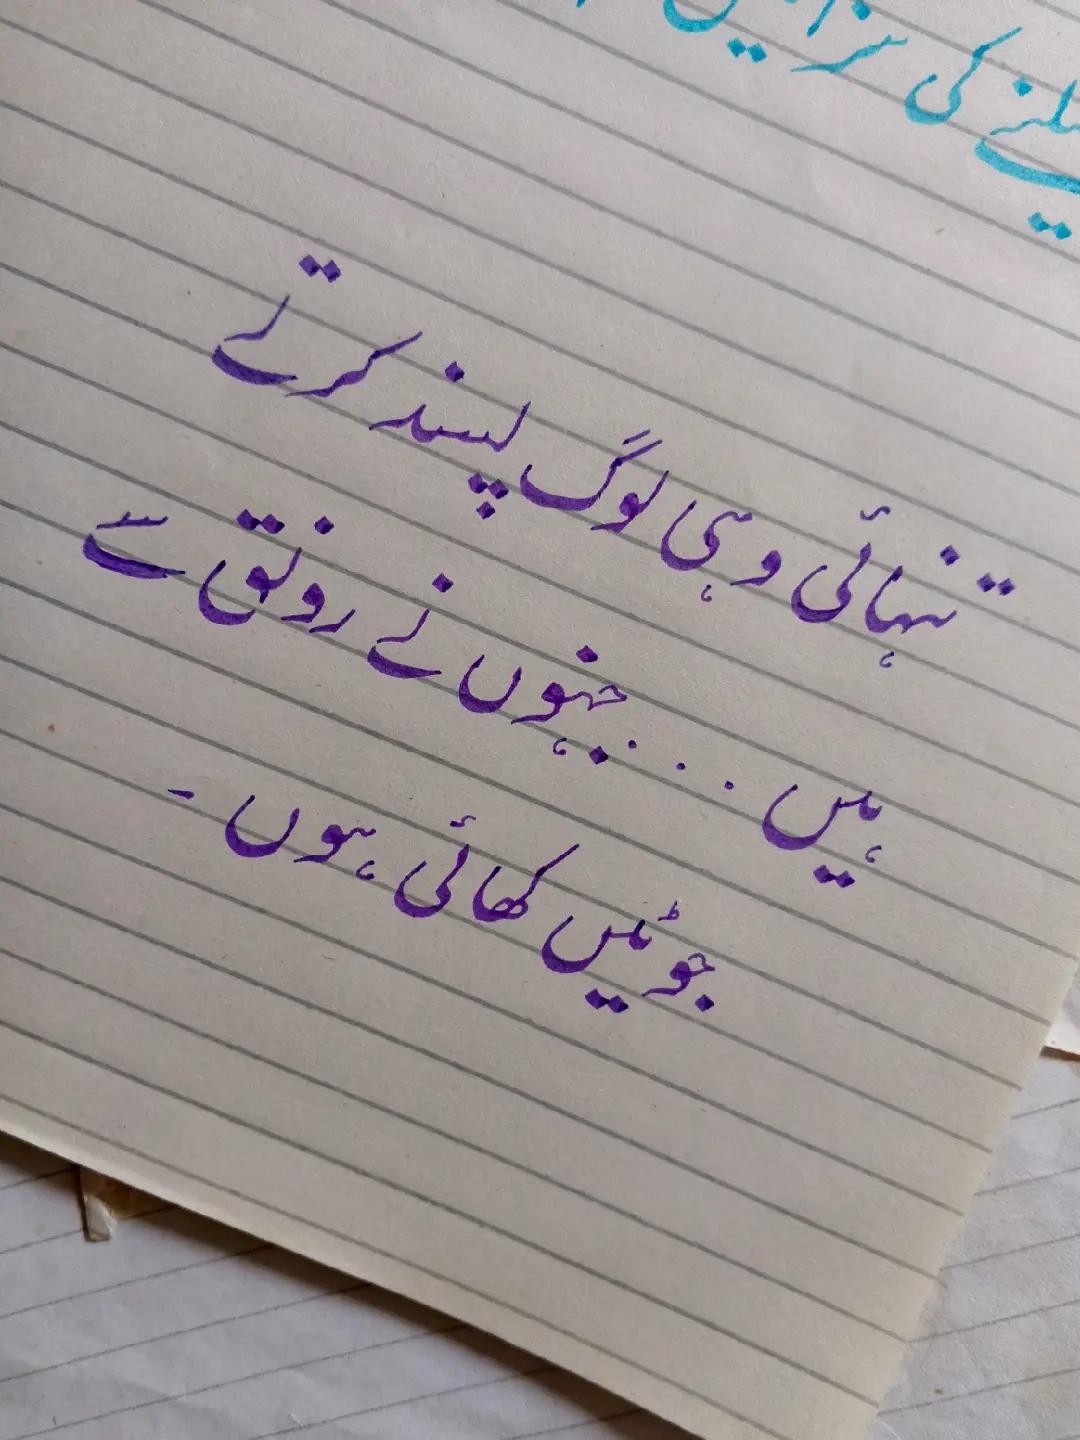 کی
تنہائی وہی لوگ پسند کرتے
ہیں...جنہوں نے رونق سے
جوٹیں کھائی ہوں۔